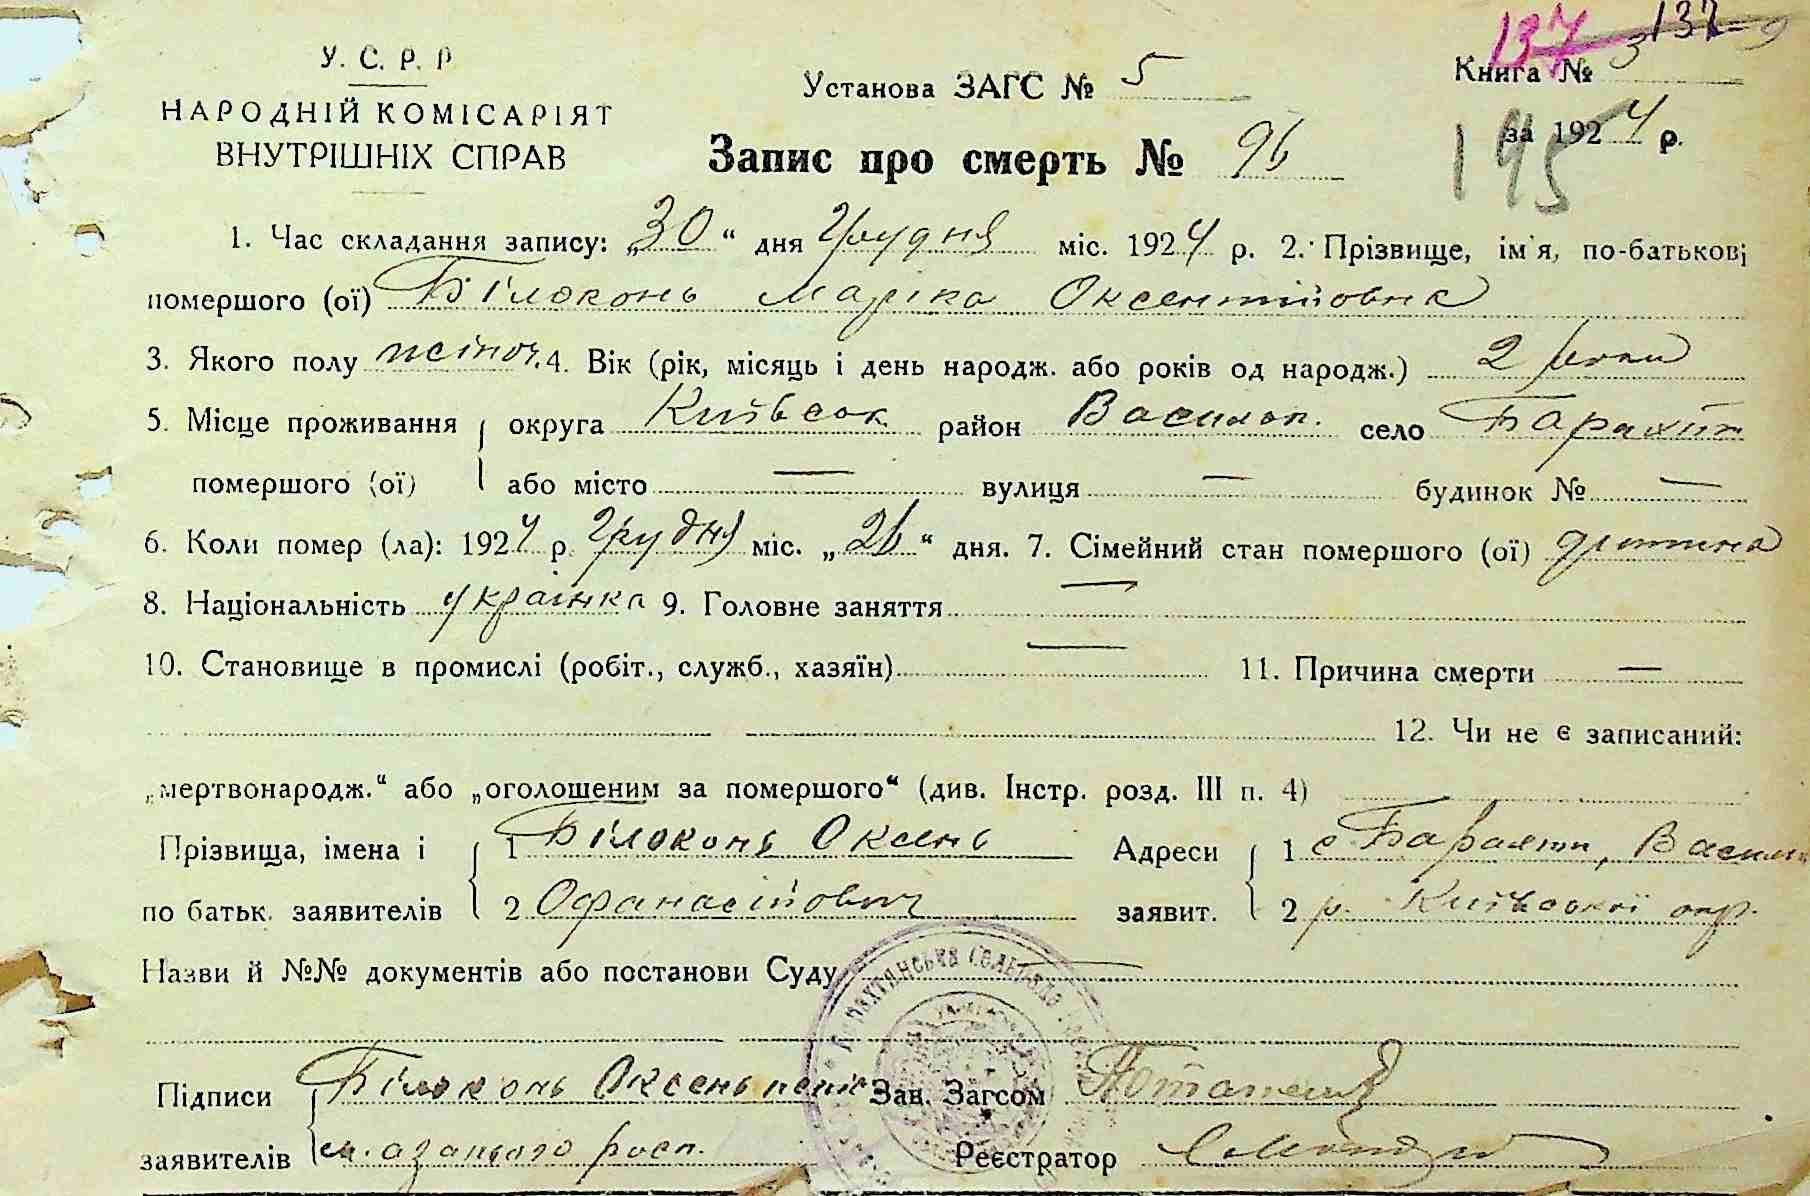 137 137
У. С. Р. Р
НАРОДНІЙ КОМІСАРІЯТ
ВНУТРІШНІХ СПРАВ
Установа ЗАГС № 5
Книга № 3
за 1924 р.
195
Запис про смерть № 96
1. Час складання запису: „30“ дня Грудня міс. 1924 р. 2. Прізвище, ім'я, по-батькові
помершого (ої) Білоконь Маріка Оксентійовна
3. Якого полу жіноч. 4. Вік (рік, місяць і день народж. або років од народж.) 2 роки
5. Місце проживання округа Київськ район Васильк. село Барахти
помершого (ої) або місто — вулиця — будинок № —
6. Коли помер (ла): 1924 р. Грудня міс. „26“ дня. 7. Сімейний стан помершого (ої) дитина
8. Національність українка 9. Головне заняття —
10. Становище в промислі (робіт., служб., хазяїн) — 11. Причина смерти —
12. Чи не є записаний:
„мертвонародж.“ або „оголошеним за помершого“ (див. Інстр. розд. III п. 4)
Прізвища, імена і 1 Білоконь Оксень Адреси 1 с Барахти, Васильк
по батьк. заявителів 2 Офанасійович заявит. 2 р. Київської окр.
Назви й №№ документів або постанови Суду —
Підписи Білоконь Оксень Зав. Загсом
заявителів росп. Реєстратор